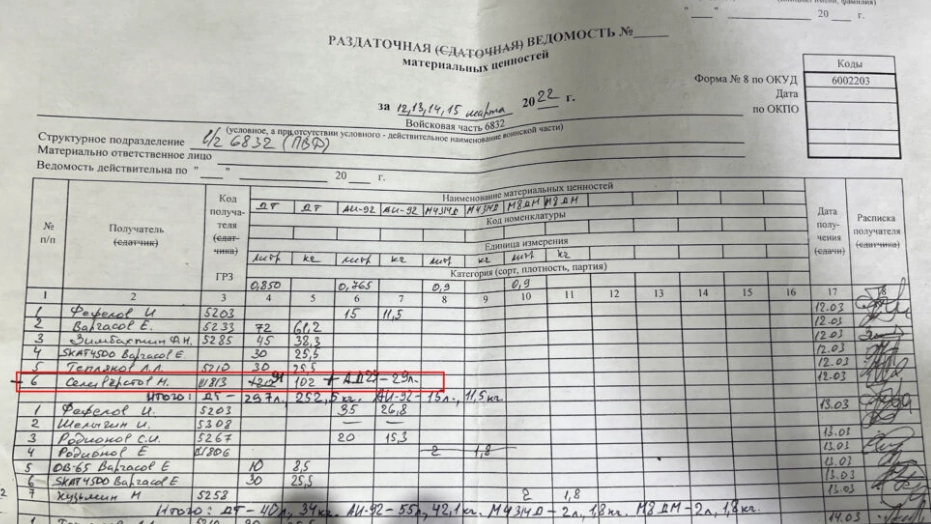 20 г.
РАЗДАТОЧНАЯ (СДАТОЧНАЯ) ВЕДОМОСТЬ №
материальных ценностей
Коды
Форма № 8 по ОКУД 6002203
Дата
по ОКПО
за 12,13,14,15 марта 2022 г.
Войсковая часть 6832
(условное, а при отсутствии условного - действительное наименование воинской части)
Структурное подразделение в/ч 6832 (ПВД)
Материально ответственное лицо
Ведомость действительна по " " 20 г.
№ п/п Получатель (сдатчик) Код получателя (сдатчика) ГРЗ Наименование материальных ценностей Дата получения (сдачи) Расписка получателя (сдатчика)
ДТ ДТ АИ-92 АИ-92 М4314Д М4314Д М8ДМ М8ДМ
Код номенклатуры
Единица измерения
литр кг литр кг литр кг литр кг
Категория (сорт, плотность, партия)
0,850 0,765 0,9 0,9
1 2 3 4 5 6 7 8 9 10 11 12 13 14 15 16 17 18
1 Фефелов И 5203 15 11,5 12.03
2 Варгасов Е. 5233 72 61,2 12.03
3 Зимбахтин 5285 45 38,3 12.03
4 SKAT4500 Варгасов Е. 30 25,5 12.03
5 Тепляков Л.Л. 5210 30 25,5 12.03
6 Селиверстов М. 1813 120 91 102 + 29 – 29л. 12.03
Итого: ДТ – 297л, 252,5кг. АИ-92 – 15л., 11,5кг.
1 Фефелов И. 5203 35 26,8 13.03
2 Шелыгин И. 5308 — —
3 Родионов С.И. 5267 20 15,3 13.03
4 Родионов Е 1806 2 1,8 13.03
5 ОВ-65 Варгасов Е 10 8,5 13.03
6 SKAT4500 Варгасов Е 30 25,5 13.03
7 Кузьмин Н 5258 2 1,8 13.03
Итого: ДТ – 40л, 34кг. АИ-92 – 55л, 42,1кг. М4314Д – 2л, 1,8кг. М8ДМ – 2л, 1,8кг.
14.03